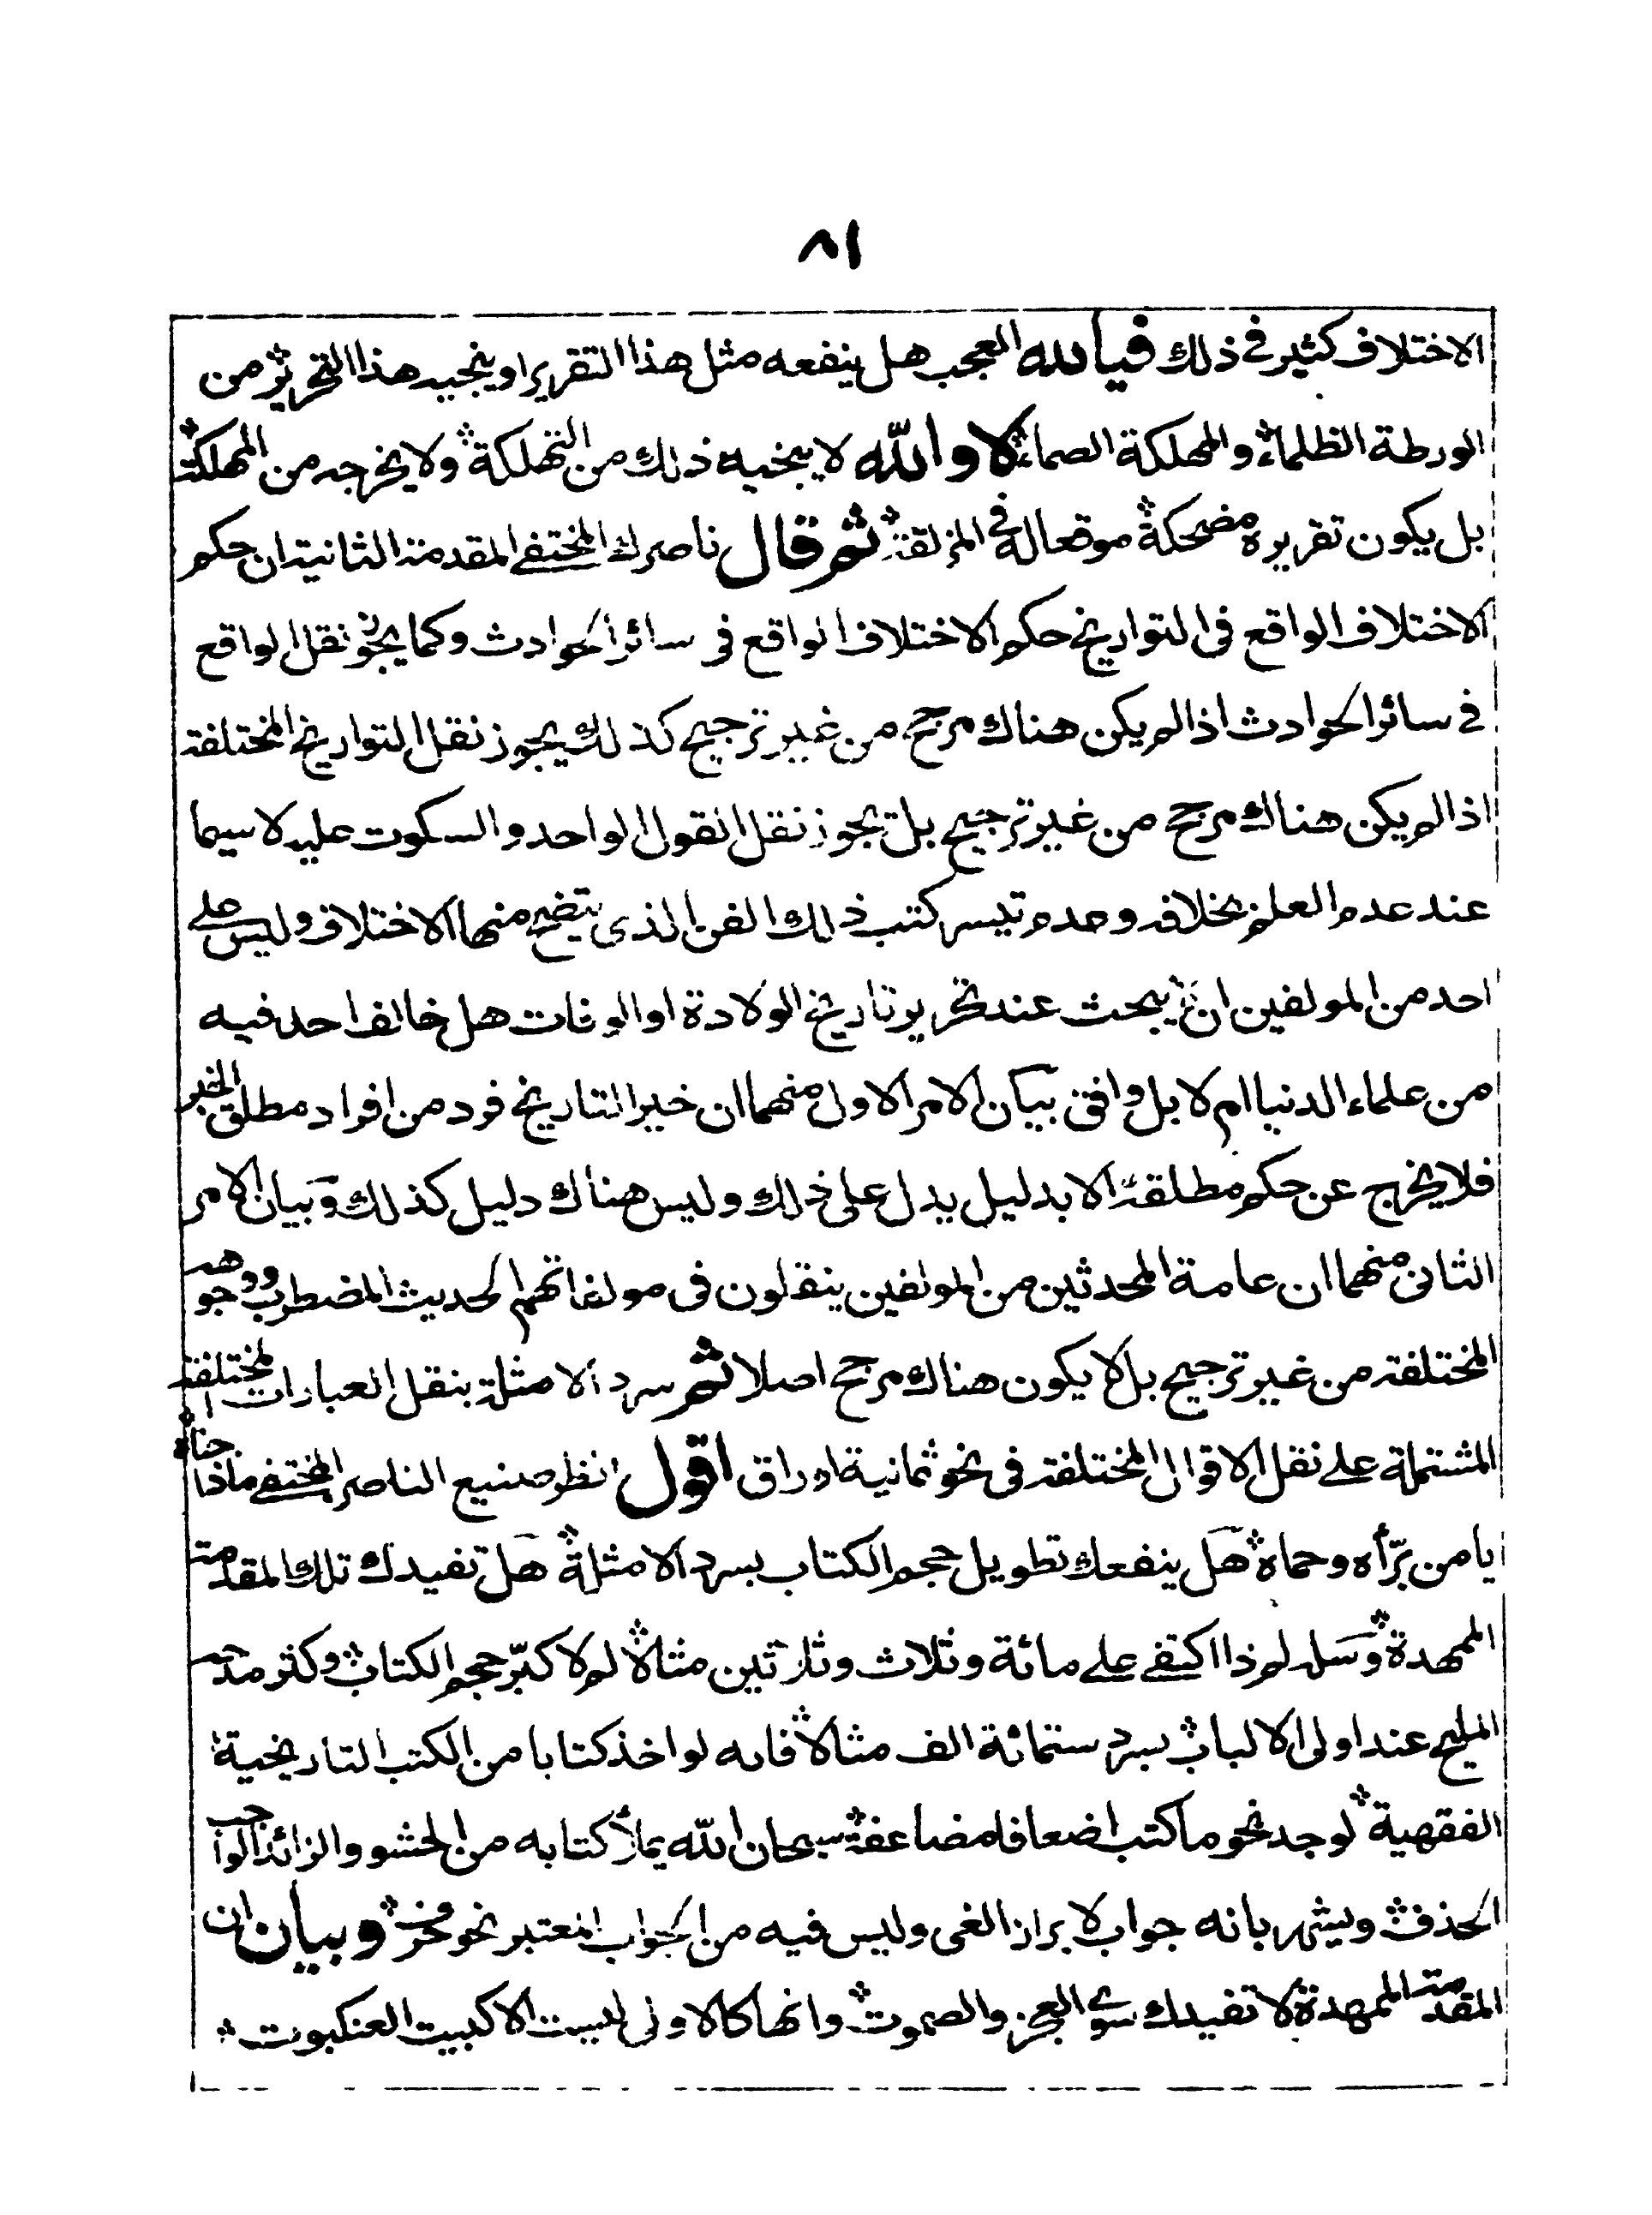 ٨١
الاختلاف كثير في ذلك فيا لله العجب هل ينفعه مثل هذا التقرير او ينجيه هذا التحرير من
الورطة الظلماء والمهلكة الصماء لا والله لا ينجيه ذلك من التهلكة ولا يخرجه من المهلكة
بل يكون تقريره مضحكة موقعا له في المزلقة ثم قال ناصرك المختفي المقدمة الثانية ان حكم
الاختلاف الواقع في التواريخ حكم الاختلاف الواقع في سائر الحوادث وكما يجوز نقل الواقع
في سائر الحوادث اذا لم يكن هناك مرجح من غير ترجيح كذلك يجوز نقل التواريخ المختلفة
اذا لم يكن هناك مرجح من غير ترجيح بل يجوز نقل القول الواحد والسكوت عليه لا سيما
عند عدم العلم بخلافه وعدم تيسر كتب ذلك الفن الذي يتضح منها الاختلاف وليس على
احد من المولفين ان يبحث عند تحرير تاريخ الولادة او الوفات هل خالف احد فيه
من علماء الدنيا ام لا بل وافق بيان الامر الاول منهما ان خبر التاريخ فرد من افراد مطلق الخبر
فلا يخرج عن حكم مطلقه الا بدليل يدل على ذلك وليس هناك دليل كذلك وبيان الامر
الثاني منهما ان عامة المحدثين من المولفين ينقلون في مولفاتهم الحديث المضطرب ووجوهه
المختلفة من غير ترجيح بل لا يكون هناك مرجح اصلا ثم سرد الامثلة بنقل العبارات المختلفة
المشتملة على نقل الاقوال المختلفة في نحو ثمانية اوراق اقول انظر صنيع الناصر المختفي ماذا جناه
يا من برّأه وحماه هل ينفعك تطويل حجم الكتاب بسرد الامثلة هل تفيدك تلك المقدمة
الممهدة وسله لم ذا اكتفى على مائة وثلاث وثلاثين مثالا لم لا كبّر حجم الكتاب وكثر مدحه
المليح عند اولى الالباب بسرد ستمائة الف مثالا فانه لو اخذ كتابا من الكتب التاريخية
الفقهية لوجد نحو ما كتب اضعافا مضاعفة سبحان الله يملأ كتابه من الحشو والزائد الواجب
الحذف ويشهر بانه جواب لابراز الغي وليس فيه من الجواب المعتبر نحو وبيان ان
المقدمة الممهدة لا تفيدك سوى العجز والصموت وانها كالاولى ليست الا كبيت العنكبوت